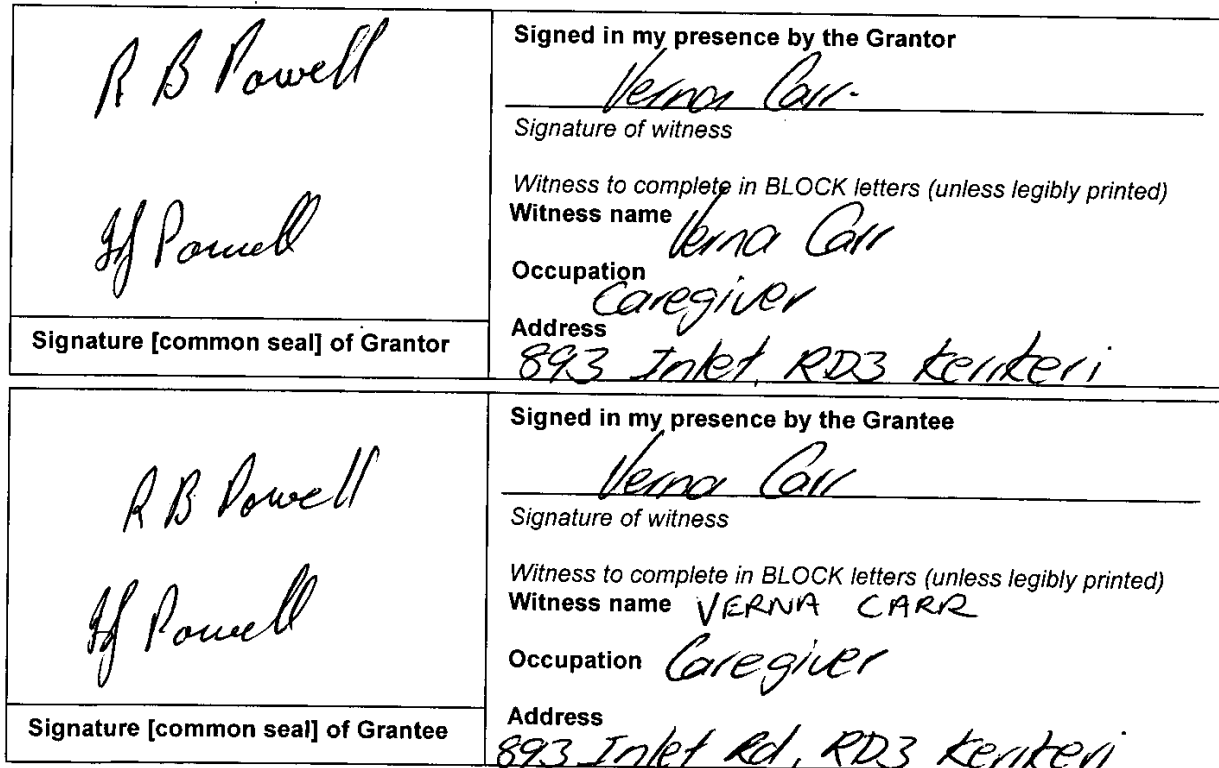 R B Powell
Powell
Signature [common seal] of Grantor
Signed in my presence by the Grantor
Verna Carr
Signature of witness
Witness to complete in BLOCK letters (unless legibly printed)
Witness name Verna Carr
Occupation
Caregiver
Address
893 Inlet, RD3 Kerikeri
R B Powell
Powell
Signature [common seal] of Grantee
Signed in my presence by the Grantee
Verna Carr
Signature of witness
Witness to complete in BLOCK letters (unless legibly printed)
Witness name VERNA CARR
Occupation Caregiver
Address
893 Inlet Rd, RD3 Kerikeri